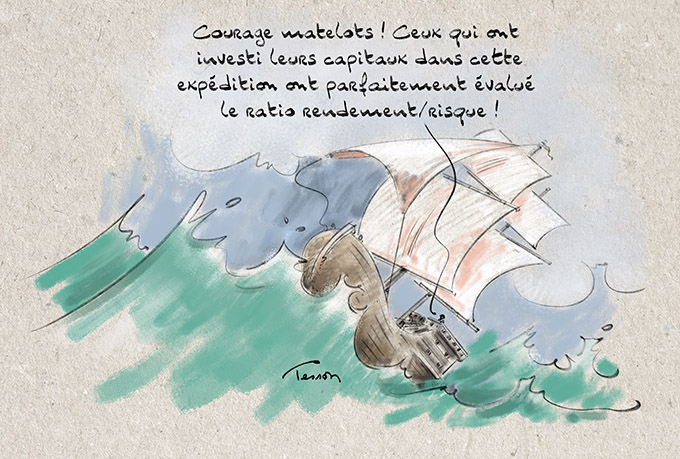 Courage matelots ! Ceux qui ont
investi leurs capitaux dans cette
expédition ont parfaitement évalué
le ratio rendement/risque !
Tesson